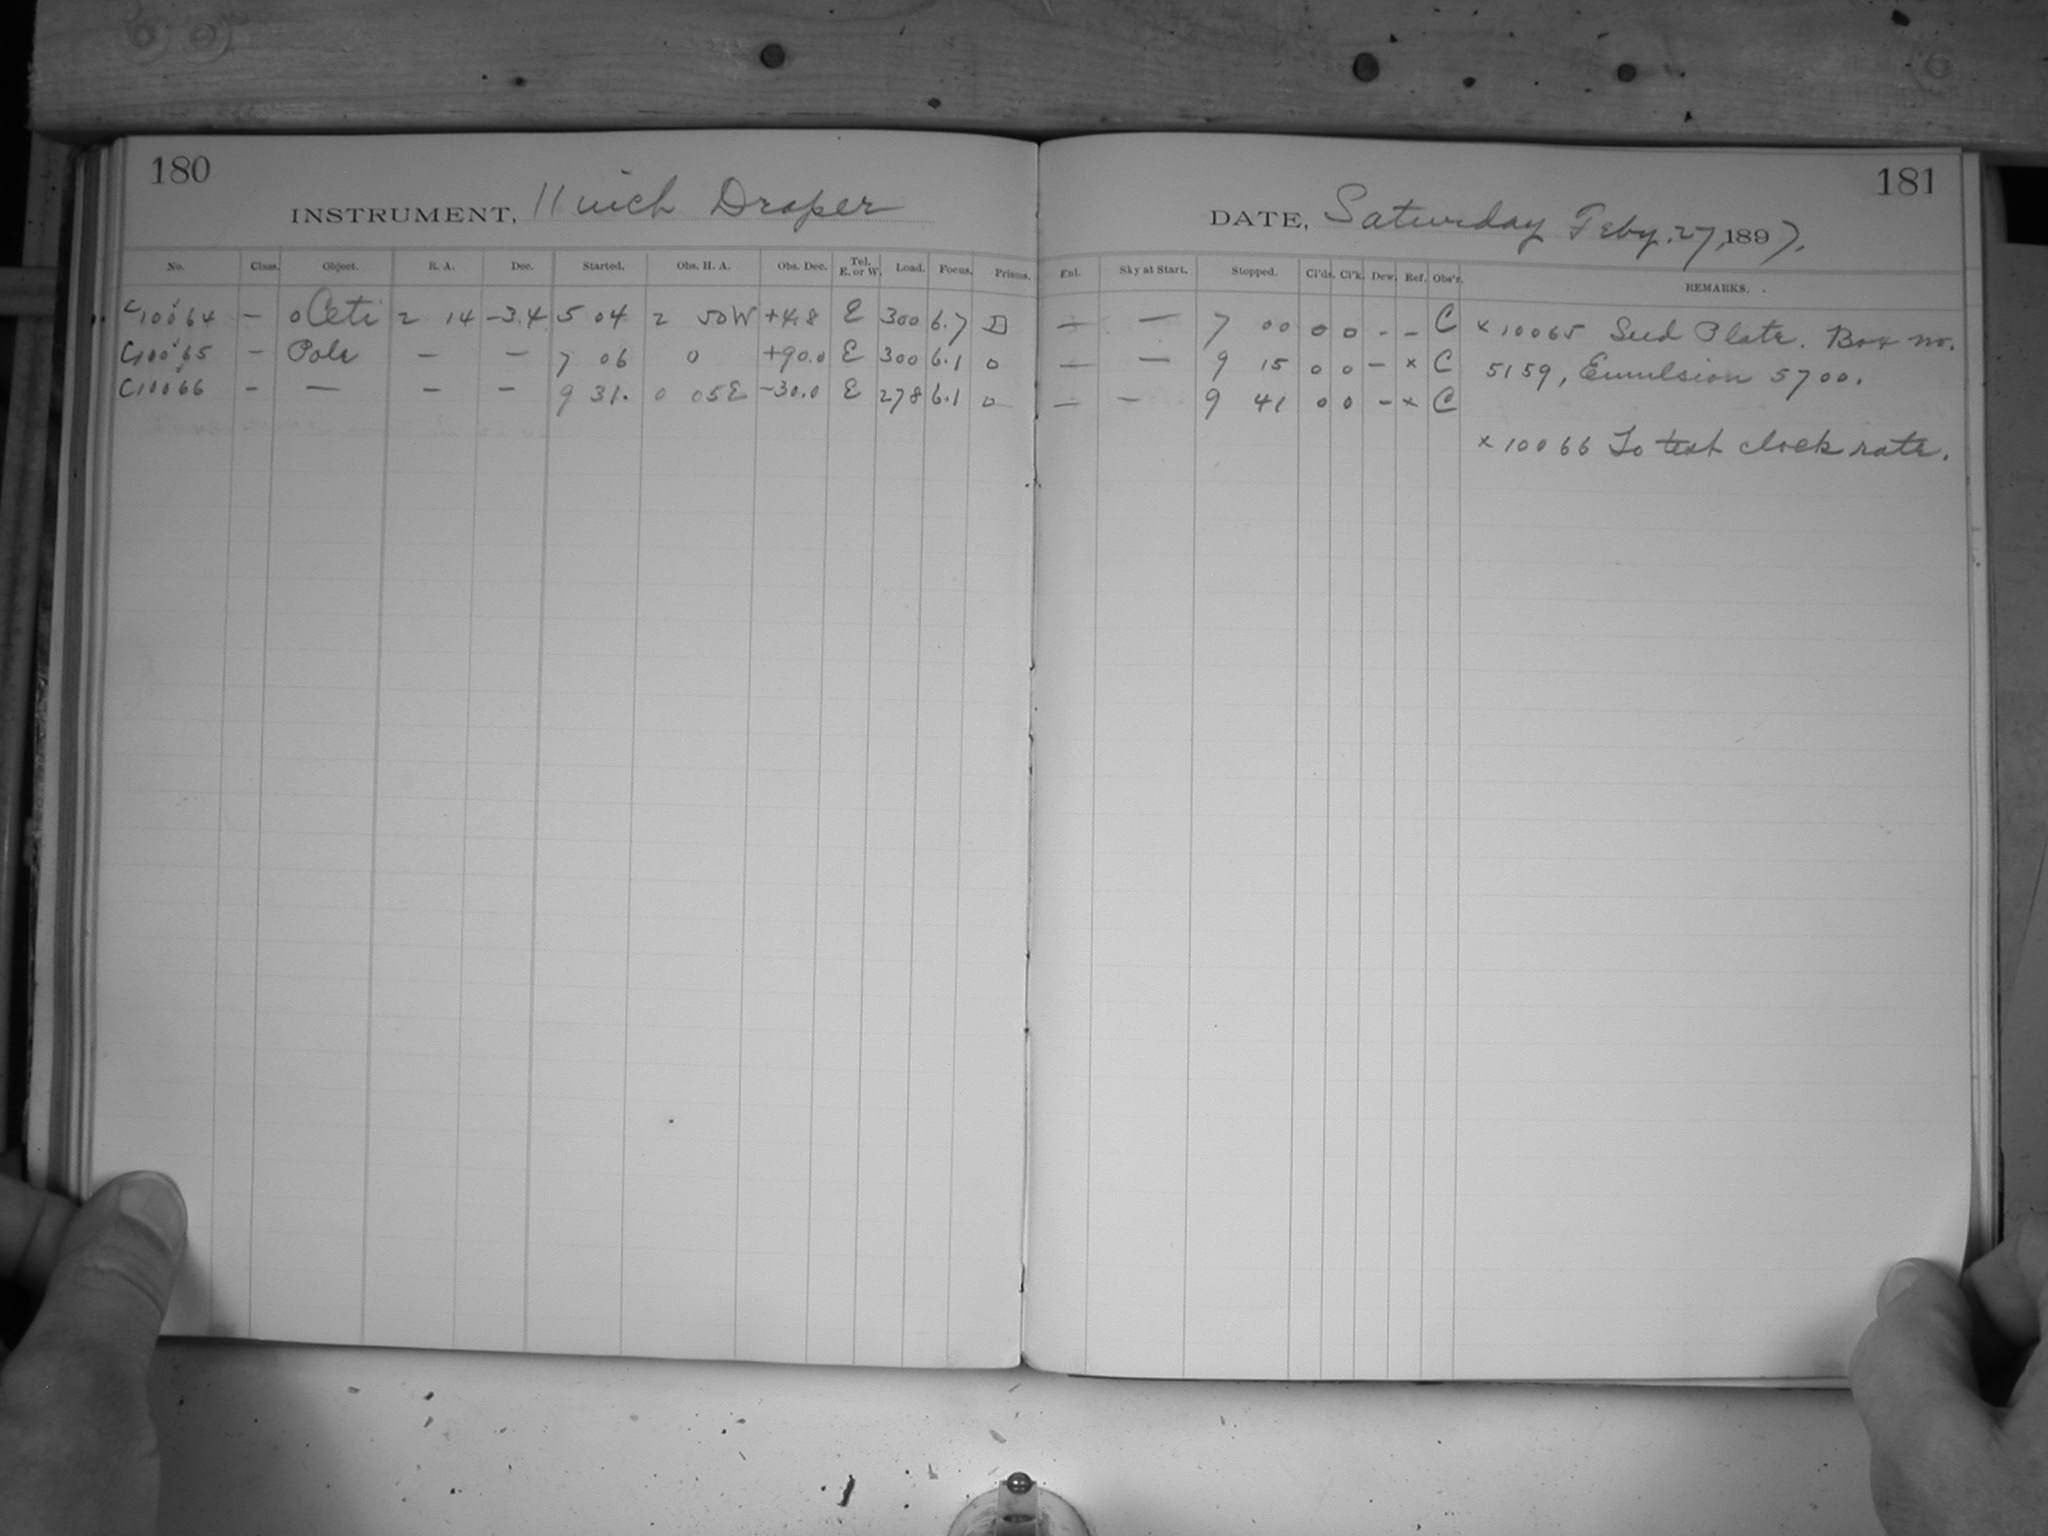 180
INSTRUMENT, 11 inch Draper
No. Class. Object. R. A. Dec. Started. Obs. H. A. Obs. Dec. Tel. E. or W. Load. Focus. Prisms.
C10064 — o Ceti 2 14 -3.4 5 04 2 50W +4.8 E 300 6.7
C10065 — Pole — — 7 06 0 +90.0 E 300 6.1 0
C10066 — — — — 9 31. 0 05E -30.0 E 278 6.1 0
181
DATE, Saturday Feby. 27, 1897.
Enl. Sky at Start. Stopped. Cl'ds. Cl'k. Dew. Ref. Obs'r. REMARKS.
— — 7 00 0 0 - - C x 10065 Seed Plate. Box no.
— — 9 15 0 0 — x C 5159, Emulsion 5700.
— — 9 41 0 0 - x C
x 10066 To test clock rate.